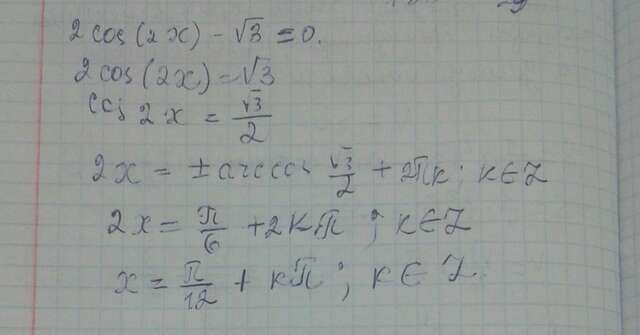 2cos(2x) - √3 = 0.
2cos(2x) = √3
cos 2x = √3/2
2x = ±arccos √3/2 + 2πk; k∈Z
2x = π/6 + 2kπ; k∈Z
x = π/12 + kπ; k∈Z